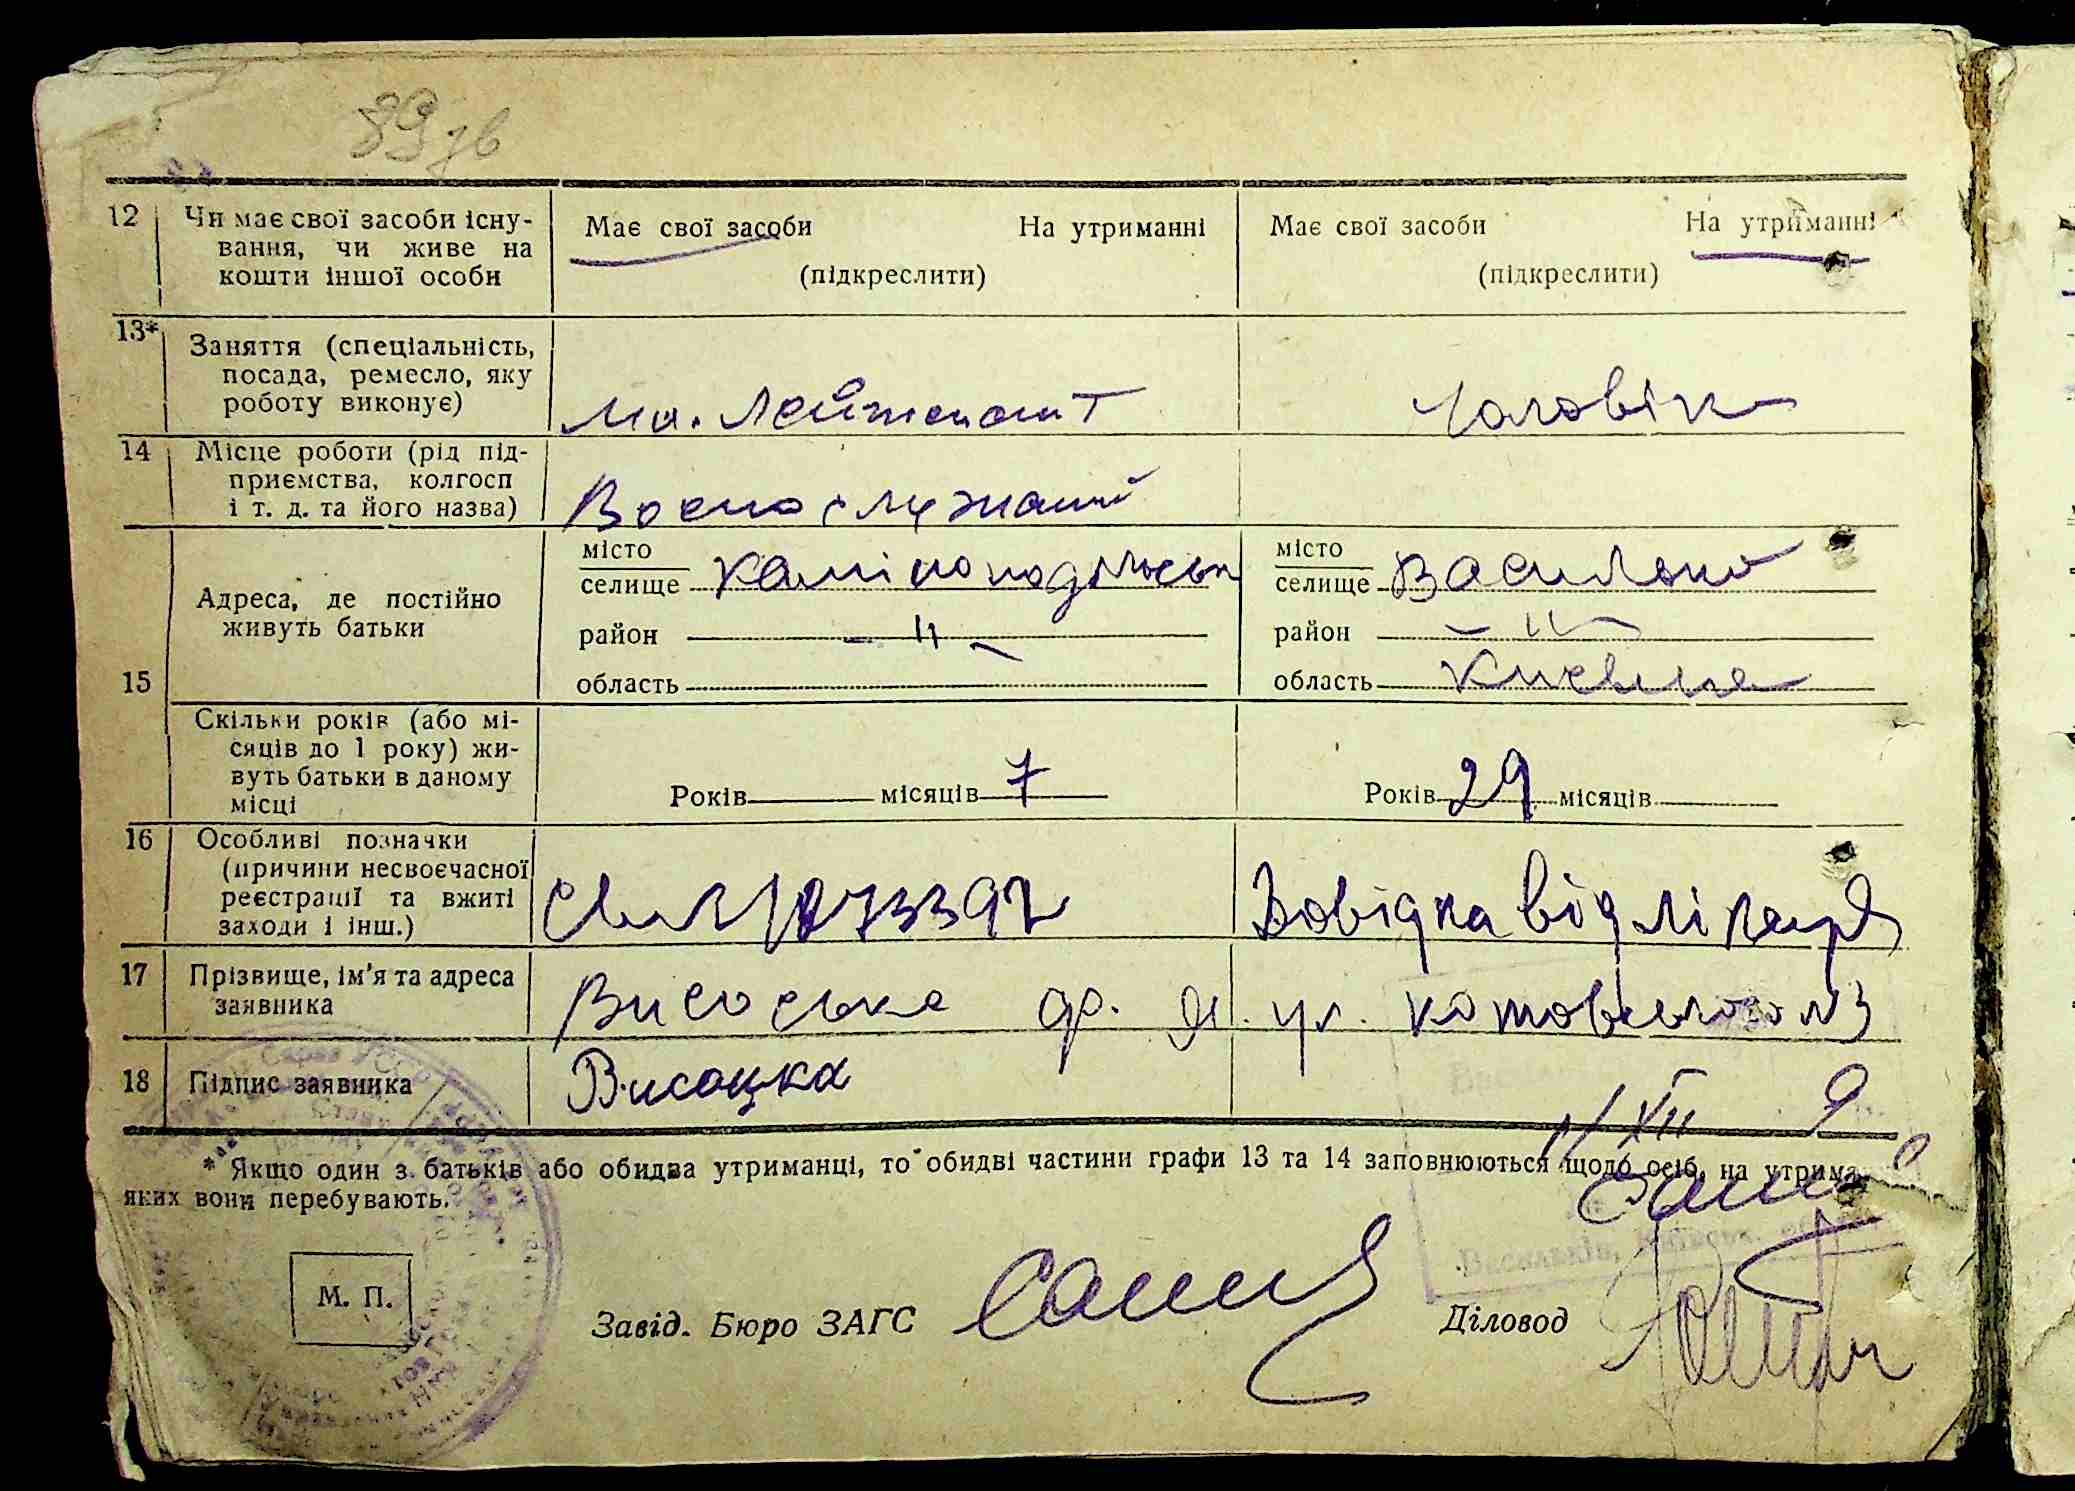 89 зв
12 Чи має свої засоби існу-
вання, чи живе на
кошти іншої особи
Має свої засоби На утриманні
(підкреслити)
Має свої засоби На утриманні
(підкреслити)
13* Заняття (спеціальність,
посада, ремесло, яку
роботу виконує)
Мл. Лейтенант
Чоловік
14 Місце роботи (рід під-
приємства, колгосп
і т. д. та його назва)
Воєнослужащий
15 Адреса, де постійно
живуть батьки
місто
селище
район — " —
область
місто
селище Васильків
район — " —
область Київська
Скільки років (або мі-
сяців до 1 року) жи-
вуть батьки в даному
місці
Років місяців 7
Років 29 місяців
16 Особливі позначки
(причини несвоєчасної
реєстрації та вжиті
заходи і інш.)
Довідка від лікаря
17 Прізвище, ім'я та адреса
заявника
Висоцька ул. Котовського №3
18 Підпис заявника
Висоцка
XII
* Якщо один з батьків або обидва утриманці, то обидві частини графи 13 та 14 заповнюються щодо осіб, на утрима
яких вони перебувають.
М. П.
Завід. Бюро ЗАГС
Діловод
Васильків, Київськ.